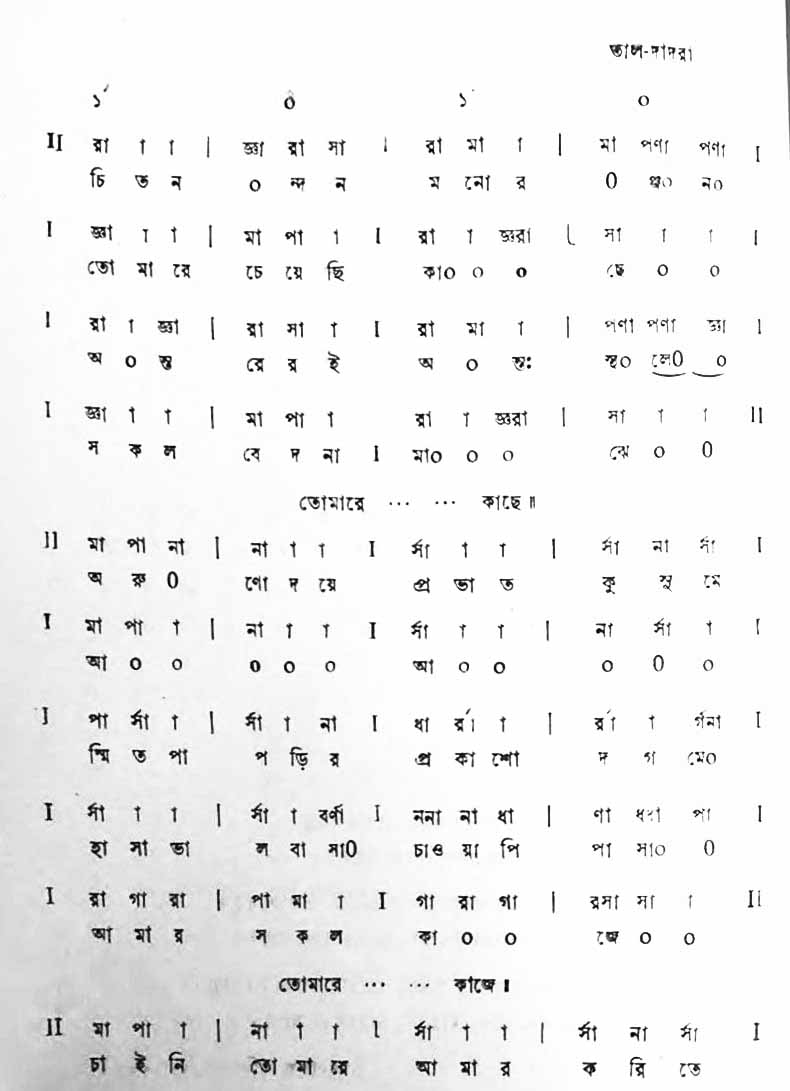 তাল-দাদরা
১´ ০ ১ ০
II রা া া | জ্ঞা রা সা I রা মা া | মা পণা পণা I
চি ত ন ০ ন্দ ন ম নো র ০ ঞ্জ০ ন০
I জ্ঞা া া | মা পা া I রা া জ্ঞরা | সা া া I
তো মা রে চে য়ে ছি কা০ ০ ০ ছে ০ ০
I রা া জ্ঞা | রা সা া I রা মা া | পণা পণা জ্ঞা I
অ ০ ন্ত রে র ই অ ০ ন্তঃ স্থ০ লে০ ০
I জ্ঞা া া | মা পা া রা া জ্ঞরা | সা া া II
স ক ল বে দ না I মা০ ০ ০ ঝে ০ ০
তোমারে ... ... কাছে॥
II মা পা না | না া া I র্সা া া | র্সা না র্সা I
অ রু ০ ণো দ য়ে প্র ভা ত কু সু মে
I মা পা া | না া া I র্সা া া | না র্সা া I
আ ০ ০ ০ ০ ০ আ ০ ০ ০ ০ ০
I পা র্সা া | র্সা া না I ধা র্রা া | র্রা া র্গনা I
স্মি ত পা প ড়ি র প্র কা শো দ গ মে০
I র্সা া া | র্সা া বর্ণা I ননা না ধা | ণা ধণা পা I
হা সা ভা ল বা সা০ চাও য়া পি পা সা০ ০
I রা গা রা | পা মা া I গা রা গা | রসা সা া II
আ মা র স ক ল কা ০ ০ জে ০ ০
তোমারে ... ... কাজে।
II মা পা া | না া া I র্সা া া | র্সা না র্সা I
চা ই নি তো মা রে আ মা র ক রি তে